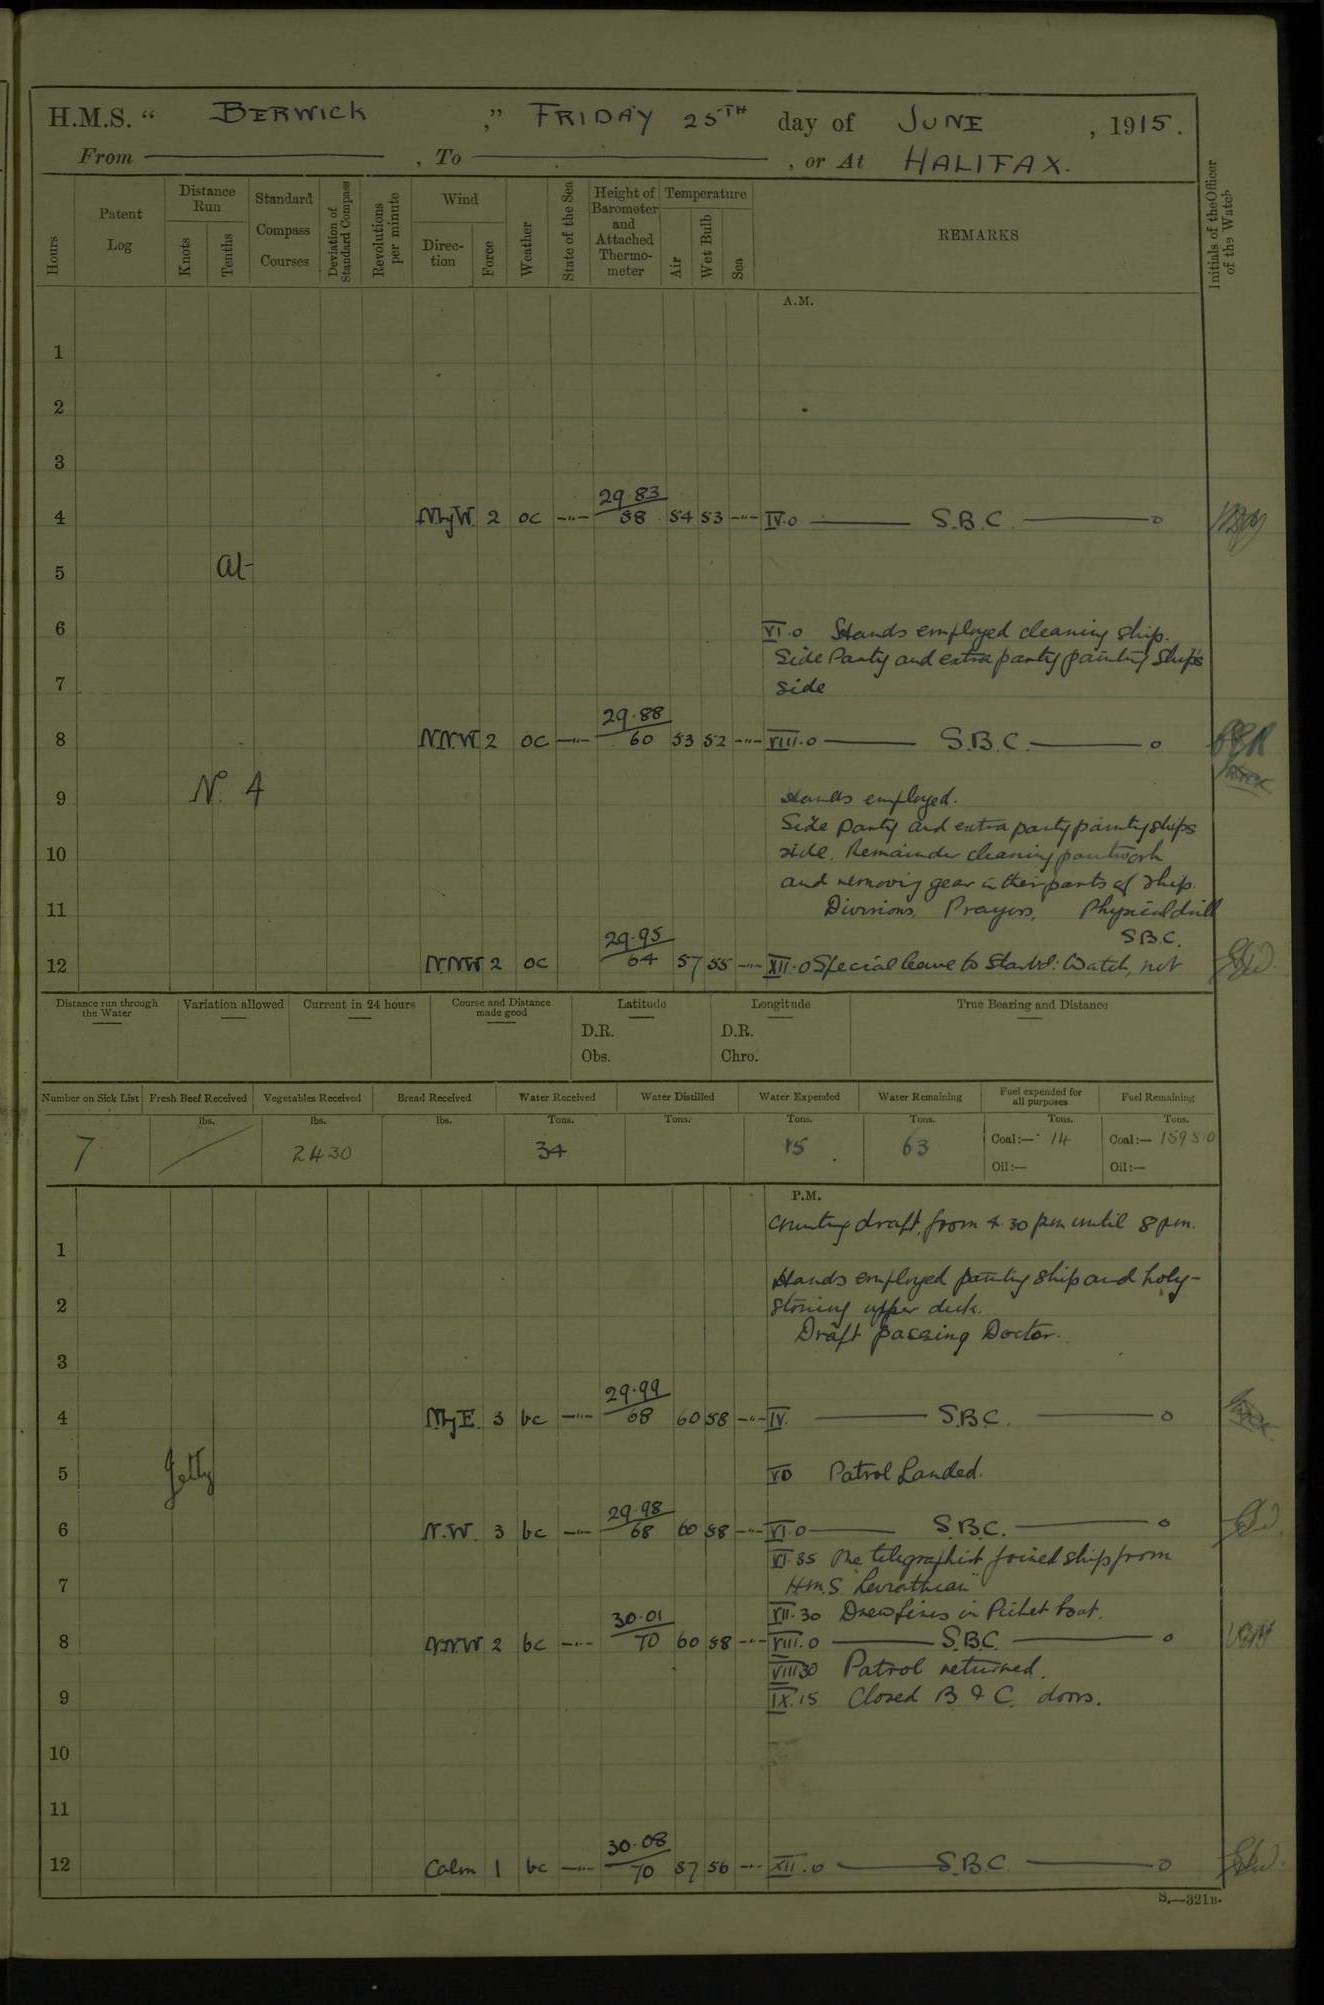 H.M.S. “ BERWICK ,” FRIDAY 25TH day of JUNE , 1915.
From , To , or At HALIFAX.
Hours
Patent Log
Distance Run
Knots
Tenths
Standard Compass Courses
Deviation of Standard Compass
Revolutions per minute
Wind
Direc-tion
Force
Weather
State of the Sea
Height of Barometer and Attached Thermo-meter
Temperature
Air
Wet Bulb
Sea
REMARKS
Initials of the Officer of the Watch
A.M.
1
2
3
29.83
4 N by W. 2 oc -"- 58 54 53 -"- IV.0 S.B.C. o
5 At
6 VI.0 Hands employed cleaning ship.
Side Party and extra party painting Ship's
7 side
29.88
8 N.N.W 2 oc -"- 60 53 52 -"- VIII.0 S.B.C. o
No. 4
9 Hands employed.
Side Party and extra party painting ships
10 side. Remainder cleaning paintwork
and removing gear in their parts of ship.
11 Divisions. Prayers. Physical drill
29.95 S.B.C.
12 N.N.W 2 oc 64 57 55 -"- XII.0 Special leave to Starbd: Watch, not
Distance run through the Water
Variation allowed
Current in 24 hours
Course and Distance made good
Latitude
D.R.
Obs.
Longitude
D.R.
Chro.
True Bearing and Distance
Number on Sick List Fresh Beef Received Vegetables Received Bread Received Water Received Water Distilled Water Expended Water Remaining Fuel expended for all purposes Fuel Remaining
lbs. lbs. lbs. Tons. Tons. Tons. Tons. Tons. Tons.
7 2430 34 15 63 Coal:— 14 Coal:— 1595 0
Oil:— Oil:—
P.M.
counting draft, from 4.30 pm until 8 pm.
1
Hands employed painting ship and holy-
2 stoning upper deck.
Draft passing Doctor.
3
29.99
4 N by E. 3 bc -"- 68 60 58 -"- IV. S.B.C. o
5 Jetty V.0 Patrol Landed.
29.98
6 N.W. 3 bc -"- 68 60 58 -"- VI.0 S.B.C. o
VI.35 One telegraphist joined ship from
7 H.M.S. "Leviathan"
30.01 VII.30 Drew fires in Picket boat.
8 N.N.W 2 bc -"- 70 60 58 -"- VIII.0 S.B.C. o
VIII 30 Patrol returned.
9 IX.15 Closed B & C. doors.
10
11
30.08
12 Calm 1 bc -"- 70 57 56 -"- XII.0 S.B.C. o
S.—321B.